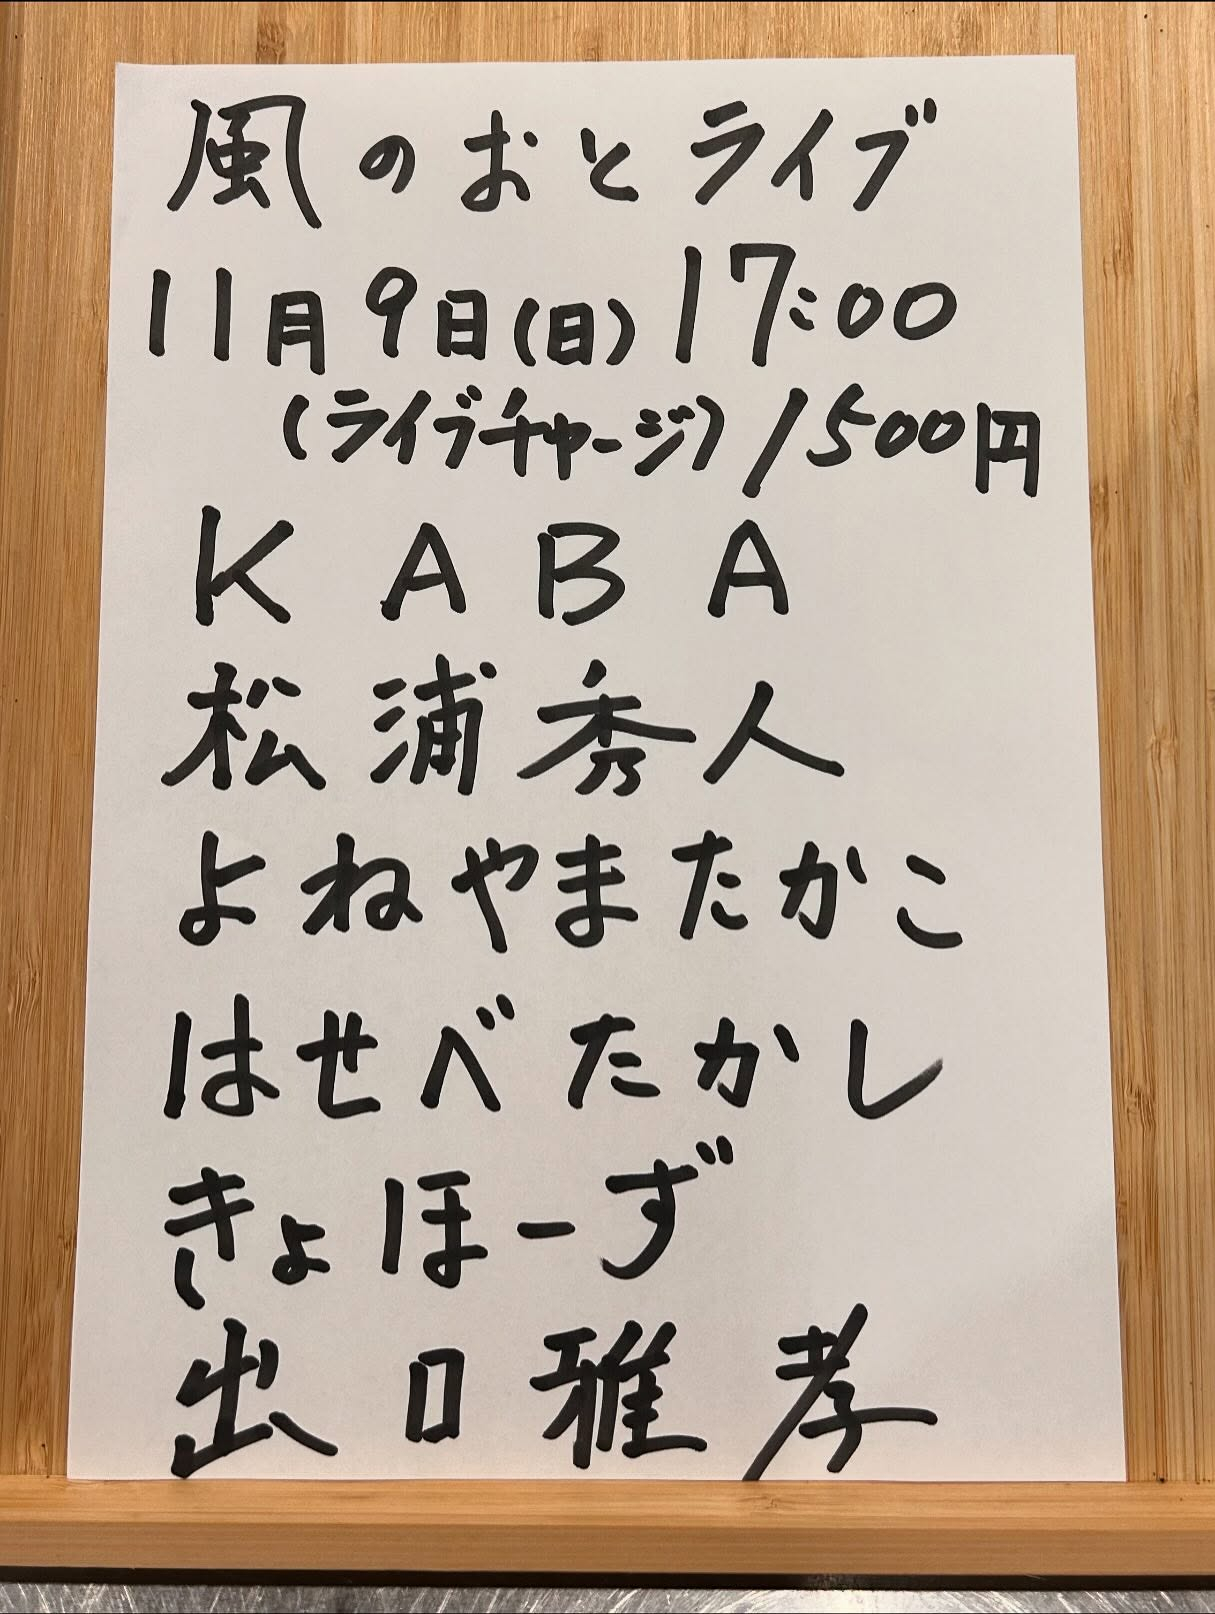 風のおとライブ
11月9日(日)17:00
(ライブチャージ)1500円
KABA
松浦秀人
よねやまたかこ
はせべたかし
きょほーず
出口雅孝